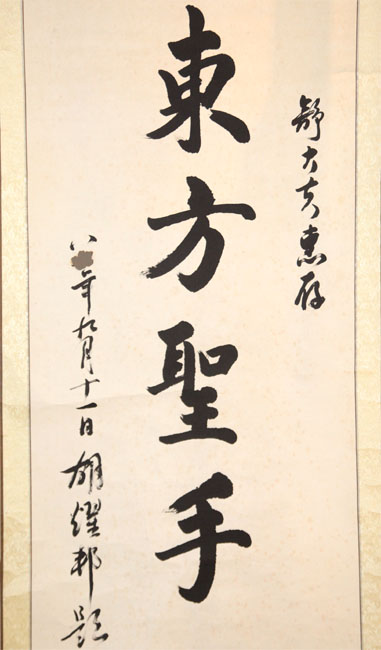 舒大夫惠存
東方聖手
八年九月十一日 胡耀邦題